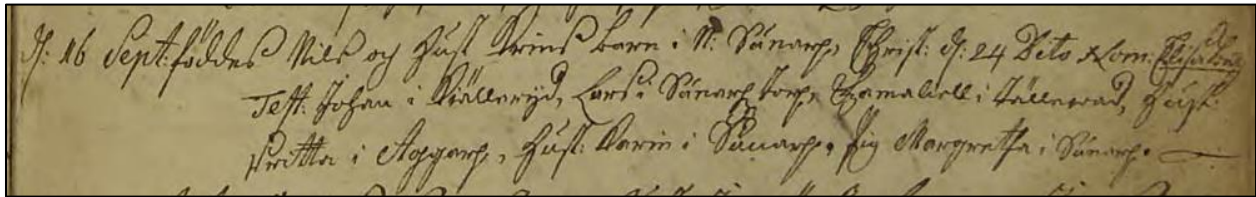 d: 16 Sept: föddes Nils och Hust Karins barn i N: Sunarp, Christ: d: 24 Dito Nom: Elisabeth
Test: Johan i Kiälleryd, Lars i Sunarp torp, Gamaliell i Källerad, Hust:
Britta i Aggarp, Hust: Karin i Sunarp, Pig Margretha i Sunarp.